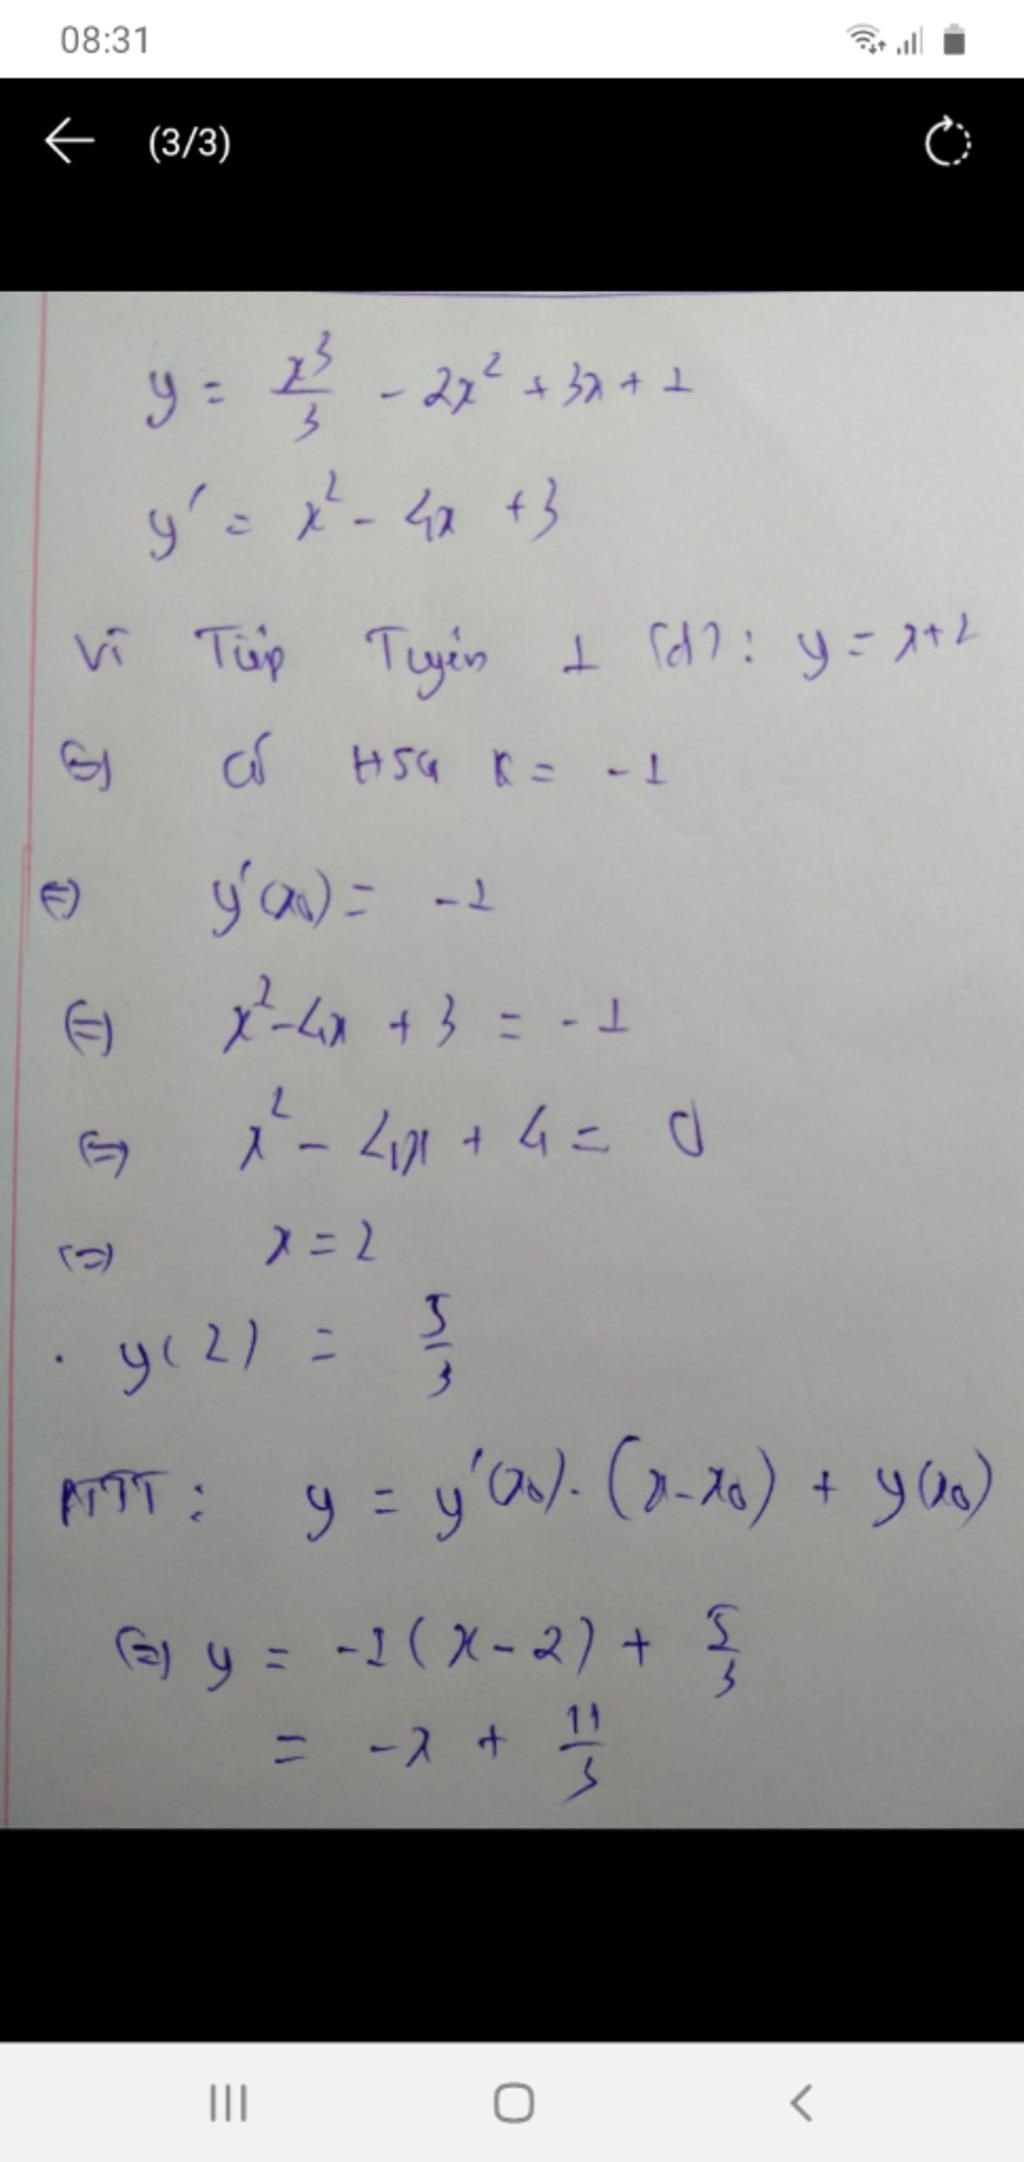 08:31
(3/3)
y = x³/3 - 2x² + 3x + 1
y' = x² - 4x + 3
Vì Tiếp Tuyến ⊥ (d): y = x+2
⇔ có HSG K = -1
⇔ y'(x₀) = -1
⇔ x² - 4x + 3 = -1
⇔ x² - 4x + 4 = 0
⇔ x = 2
. y(2) = 5/3
PTTT : y = y'(x₀). (x - x₀) + y(x₀)
⇔ y = -1(x - 2) + 5/3
= -x + 11/3